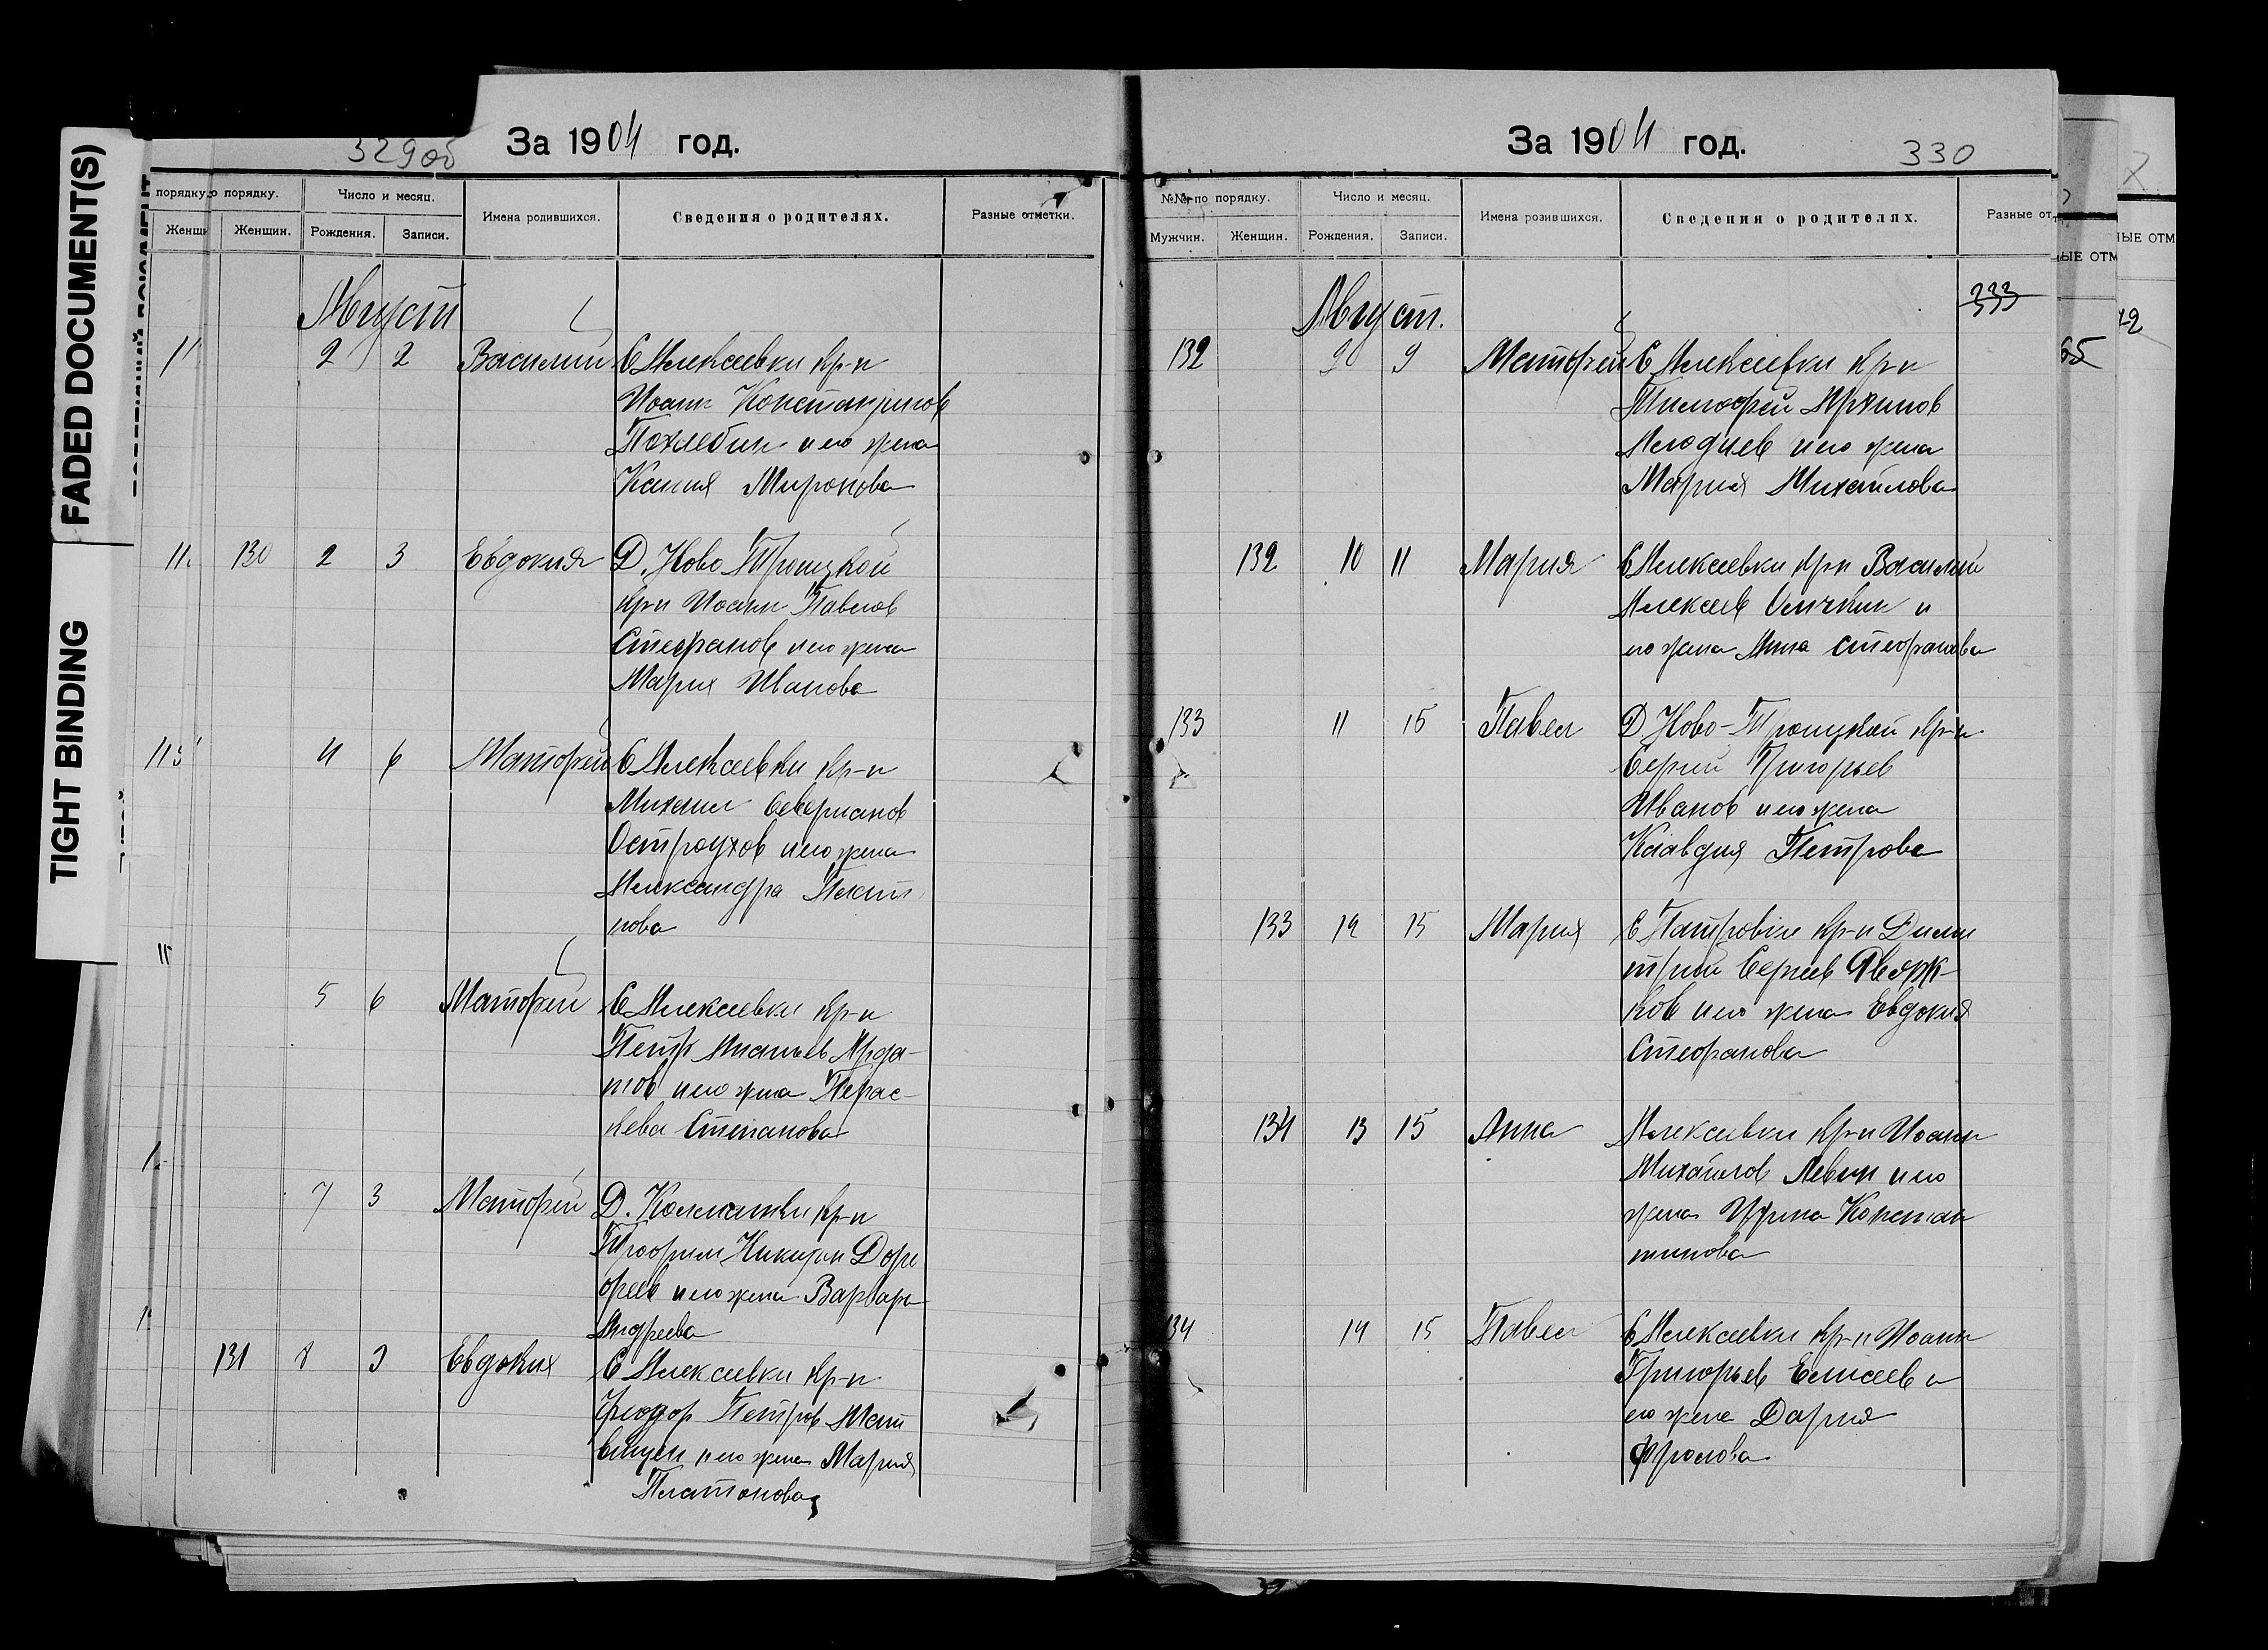 FADED DOCUMENT(S)
TIGHT BINDING
329об
За 1904 год.
порядку. о порядку.
Число и месяц.
Имена родившихся.
Сведения о родителях.
Разные отметки.
Женщ Женщин. Рождения. Записи.
Август
2 2 Василий С Алексеевки кр-н
Иоанн Константинов
Похлебин и его жена
Ксения Миронова
130 2 3 Евдокия Д. Ново Троицкой
кр-н Иоанн Павлов
Стефанов и его жена
Мария Иванова
4 6 Матфей С Алексеевки кр-н
Михаил Северианов
Остроухов и его жена
Александра
нова
5 6 Матфей С Алексеевки кр-н
Петр Ананьев Арда-
тов и его жена Парас-
кева Степанова
7 Матфей Д. кр-н
Трофим Никитин Доро
феев и его жена Варвара
Андреева
131 8 Евдокия С Алексеевки кр-н
Феодор Петров Мат
и его жена Мария
Платонова
За 1904 год.
330
№№ по порядку.
Число и месяц.
Имена розившихся.
Сведения о родителях.
Разные от
Мужчин. Женщин. Рождения. Записи.
333
Август.
132 9 9 Матфей С Алексеевки кр-н
Тимофей Архипов
и его жена
Мария Михайлова
132 10 11 Мария С Алексеевки кр-н Василий
Алексеев и
его жена Анна Стефанова
133 11 15 Павел Д. Ново-Троицкой кр-н
Сергий Григорьев
Иванов и его жена
Клавдия Петрова
133 12 15 Мария С кр-н Дими
трий Сергеев
ков и его жена Евдокия
Стефанова
134 13 15 Анна Алексеевки кр-н Иоанн
Михайлов Левин и его
жена Ирина Констан
тинова
134 14 15 Павел С Алексеевки кр-н Иоанн
Григорьев Елисеев и
его жена Дария
Фролова
ЫЕ ОТМ
НЫЕ ОТМ
65